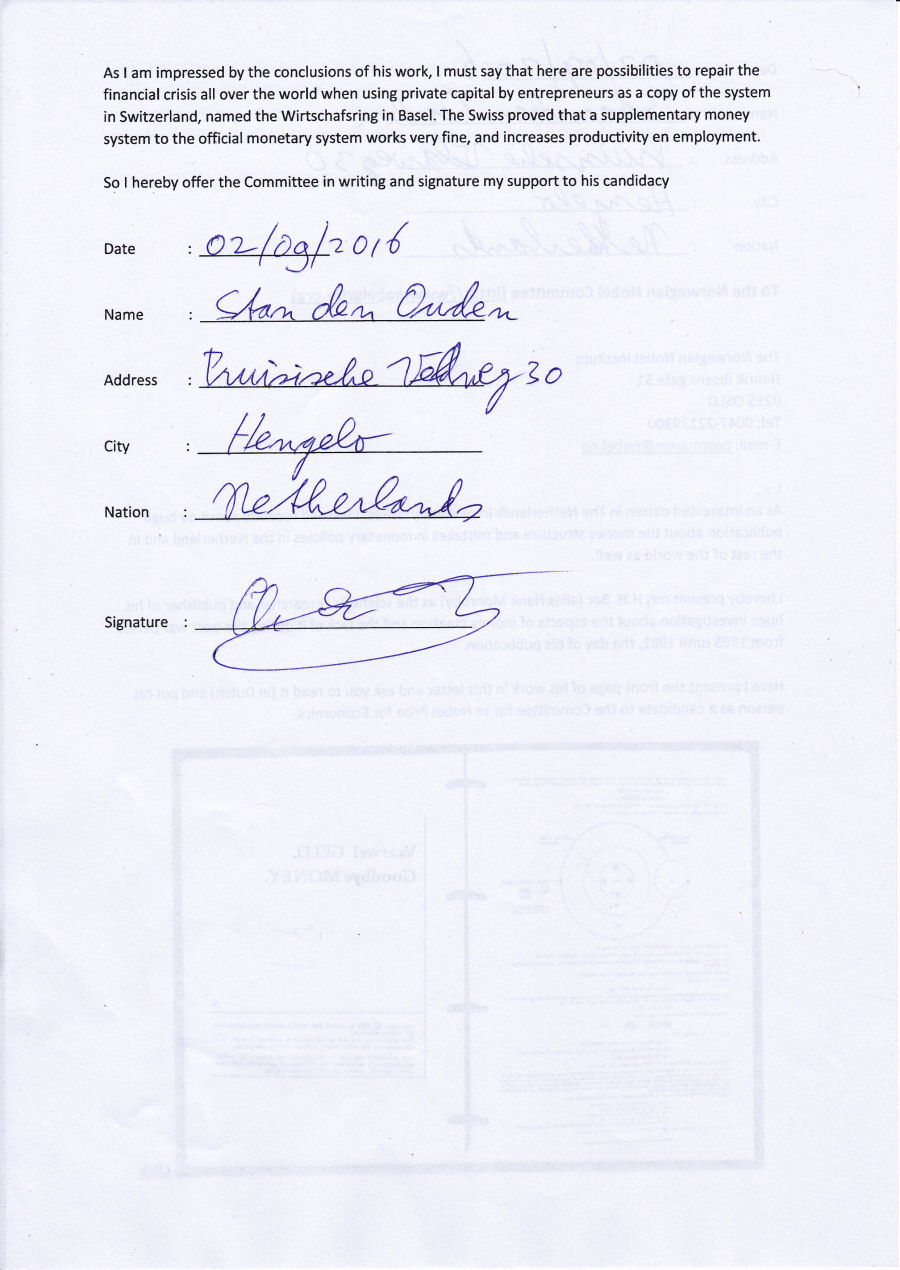 As I am impressed by the conclusions of his work, I must say that here are possibilities to repair the
financial crisis all over the world when using private capital by entrepreneurs as a copy of the system
in Switzerland, named the Wirtschafsring in Basel. The Swiss proved that a supplementary money
system to the official monetary system works very fine, and increases productivity en employment.
So I hereby offer the Committee in writing and signature my support to his candidacy
Date : 02/09/2016
Name : Stan den Ouden
Address : Pruisische Veldweg 30
City : Hengelo
Nation : Netherlands
Signature :